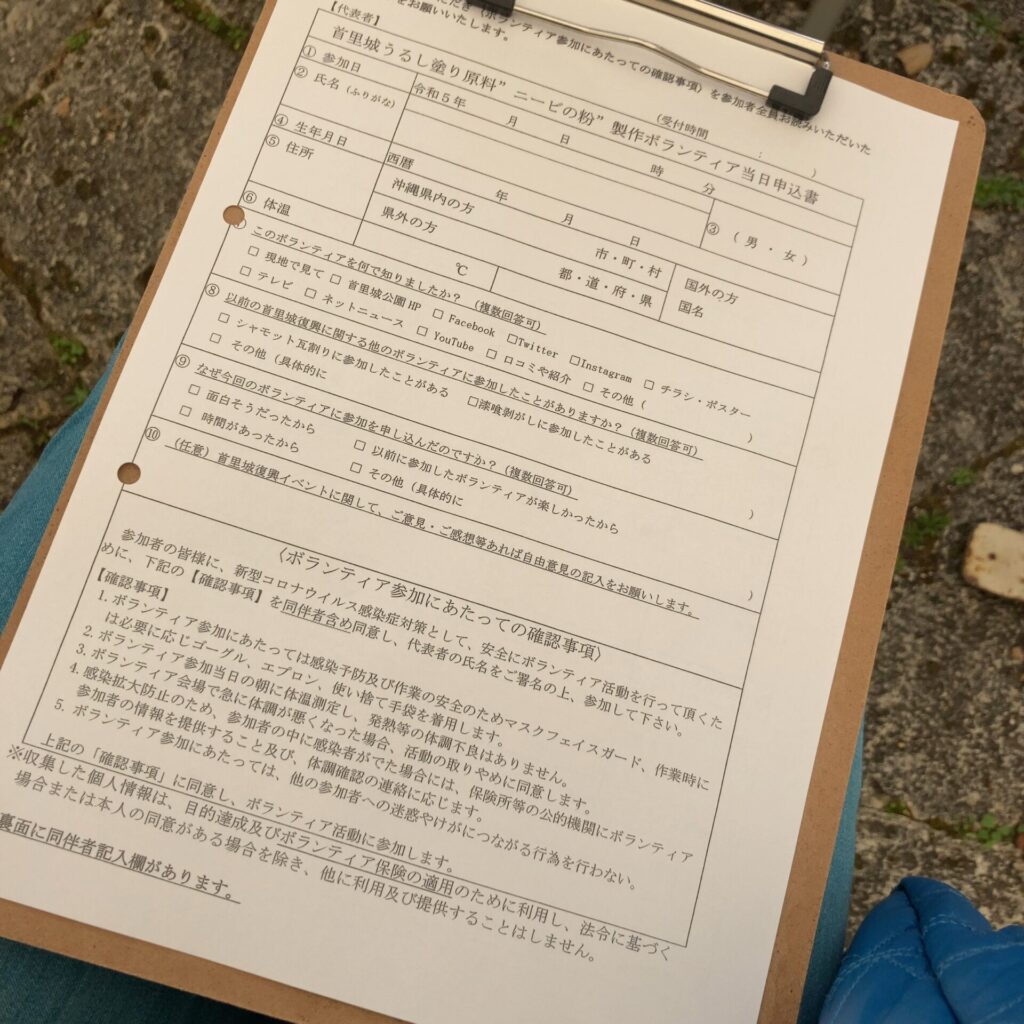 ただき（ボランティア参加にあたっての確認事項）を参加者全員お読みいただいた
をお願いいたします。
【代表者】
（受付時間　：　）
首里城うるし塗り原料”ニービの粉”製作ボランティア当日申込書
① 参加日　令和５年　月　日　時　分
② 氏名（ふりがな）　③（男・女）
④ 生年月日　西暦　年　月　日
⑤ 住所　沖縄県内の方　市・町・村　国外の方
県外の方　都・道・府・県　国名
⑥ 体温　℃
このボランティアを何で知りましたか？（複数回答可）
□ 現地で見て □ 首里城公園HP □ Facebook □Twitter □Instagram □ チラシ・ポスター
□ テレビ □ ネットニュース □ YouTube □ 口コミや紹介 □ その他（　）
⑧ 以前の首里城復興に関する他のボランティアに参加したことがありますか？（複数回答可）
□ シャモット瓦割りに参加したことがある □漆喰剥がしに参加したことがある
□ その他（具体的に　）
⑨ なぜ今回のボランティアに参加を申し込んだのですか？（複数回答可）
□ 面白そうだったから □ 以前に参加したボランティアが楽しかったから
□ 時間があったから □ その他（具体的に　）
⑩ （任意）首里城復興イベントに関して、ご意見・ご感想等あれば自由意見の記入をお願いします。
〈ボランティア参加にあたっての確認事項〉
参加者の皆様に、新型コロナウイルス感染症対策として、安全にボランティア活動を行って頂くた
めに、下記の【確認事項】を同伴者含め同意し、代表者の氏名をご署名の上、参加して下さい。
【確認事項】
1. ボランティア参加にあたっては感染予防及び作業の安全のためマスクフェイスガード、作業時に
は必要に応じゴーグル、エプロン、使い捨て手袋を着用します。
2. ボランティア参加当日の朝に体温測定し、発熱等の体調不良はありません。
3. ボランティア会場で急に体調が悪くなった場合、活動の取りやめに同意します。
4. 感染拡大防止のため、参加者の中に感染者がでた場合には、保険所等の公的機関にボランティア
参加者の情報を提供すること及び、体調確認の連絡に応じます。
5. ボランティア参加にあたっては、他の参加者への迷惑やけがにつながる行為を行わない。
上記の「確認事項」に同意し、ボランティア活動に参加します。
※収集した個人情報は、目的達成及びボランティア保険の適用のために利用し、法令に基づく
場合または本人の同意がある場合を除き、他に利用及び提供することはしません。
裏面に同伴者記入欄があります。